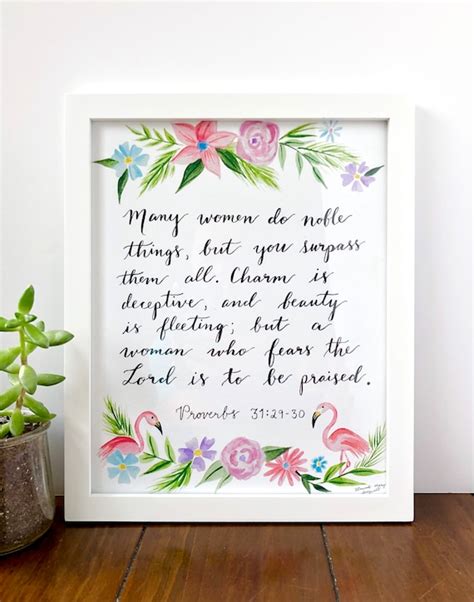 Many women do noble
things, but you surpass
them all. Charm is
deceptive, and beauty
is fleeting; but a
woman who fears the
Lord is to be praised.
Proverbs 31:29-30